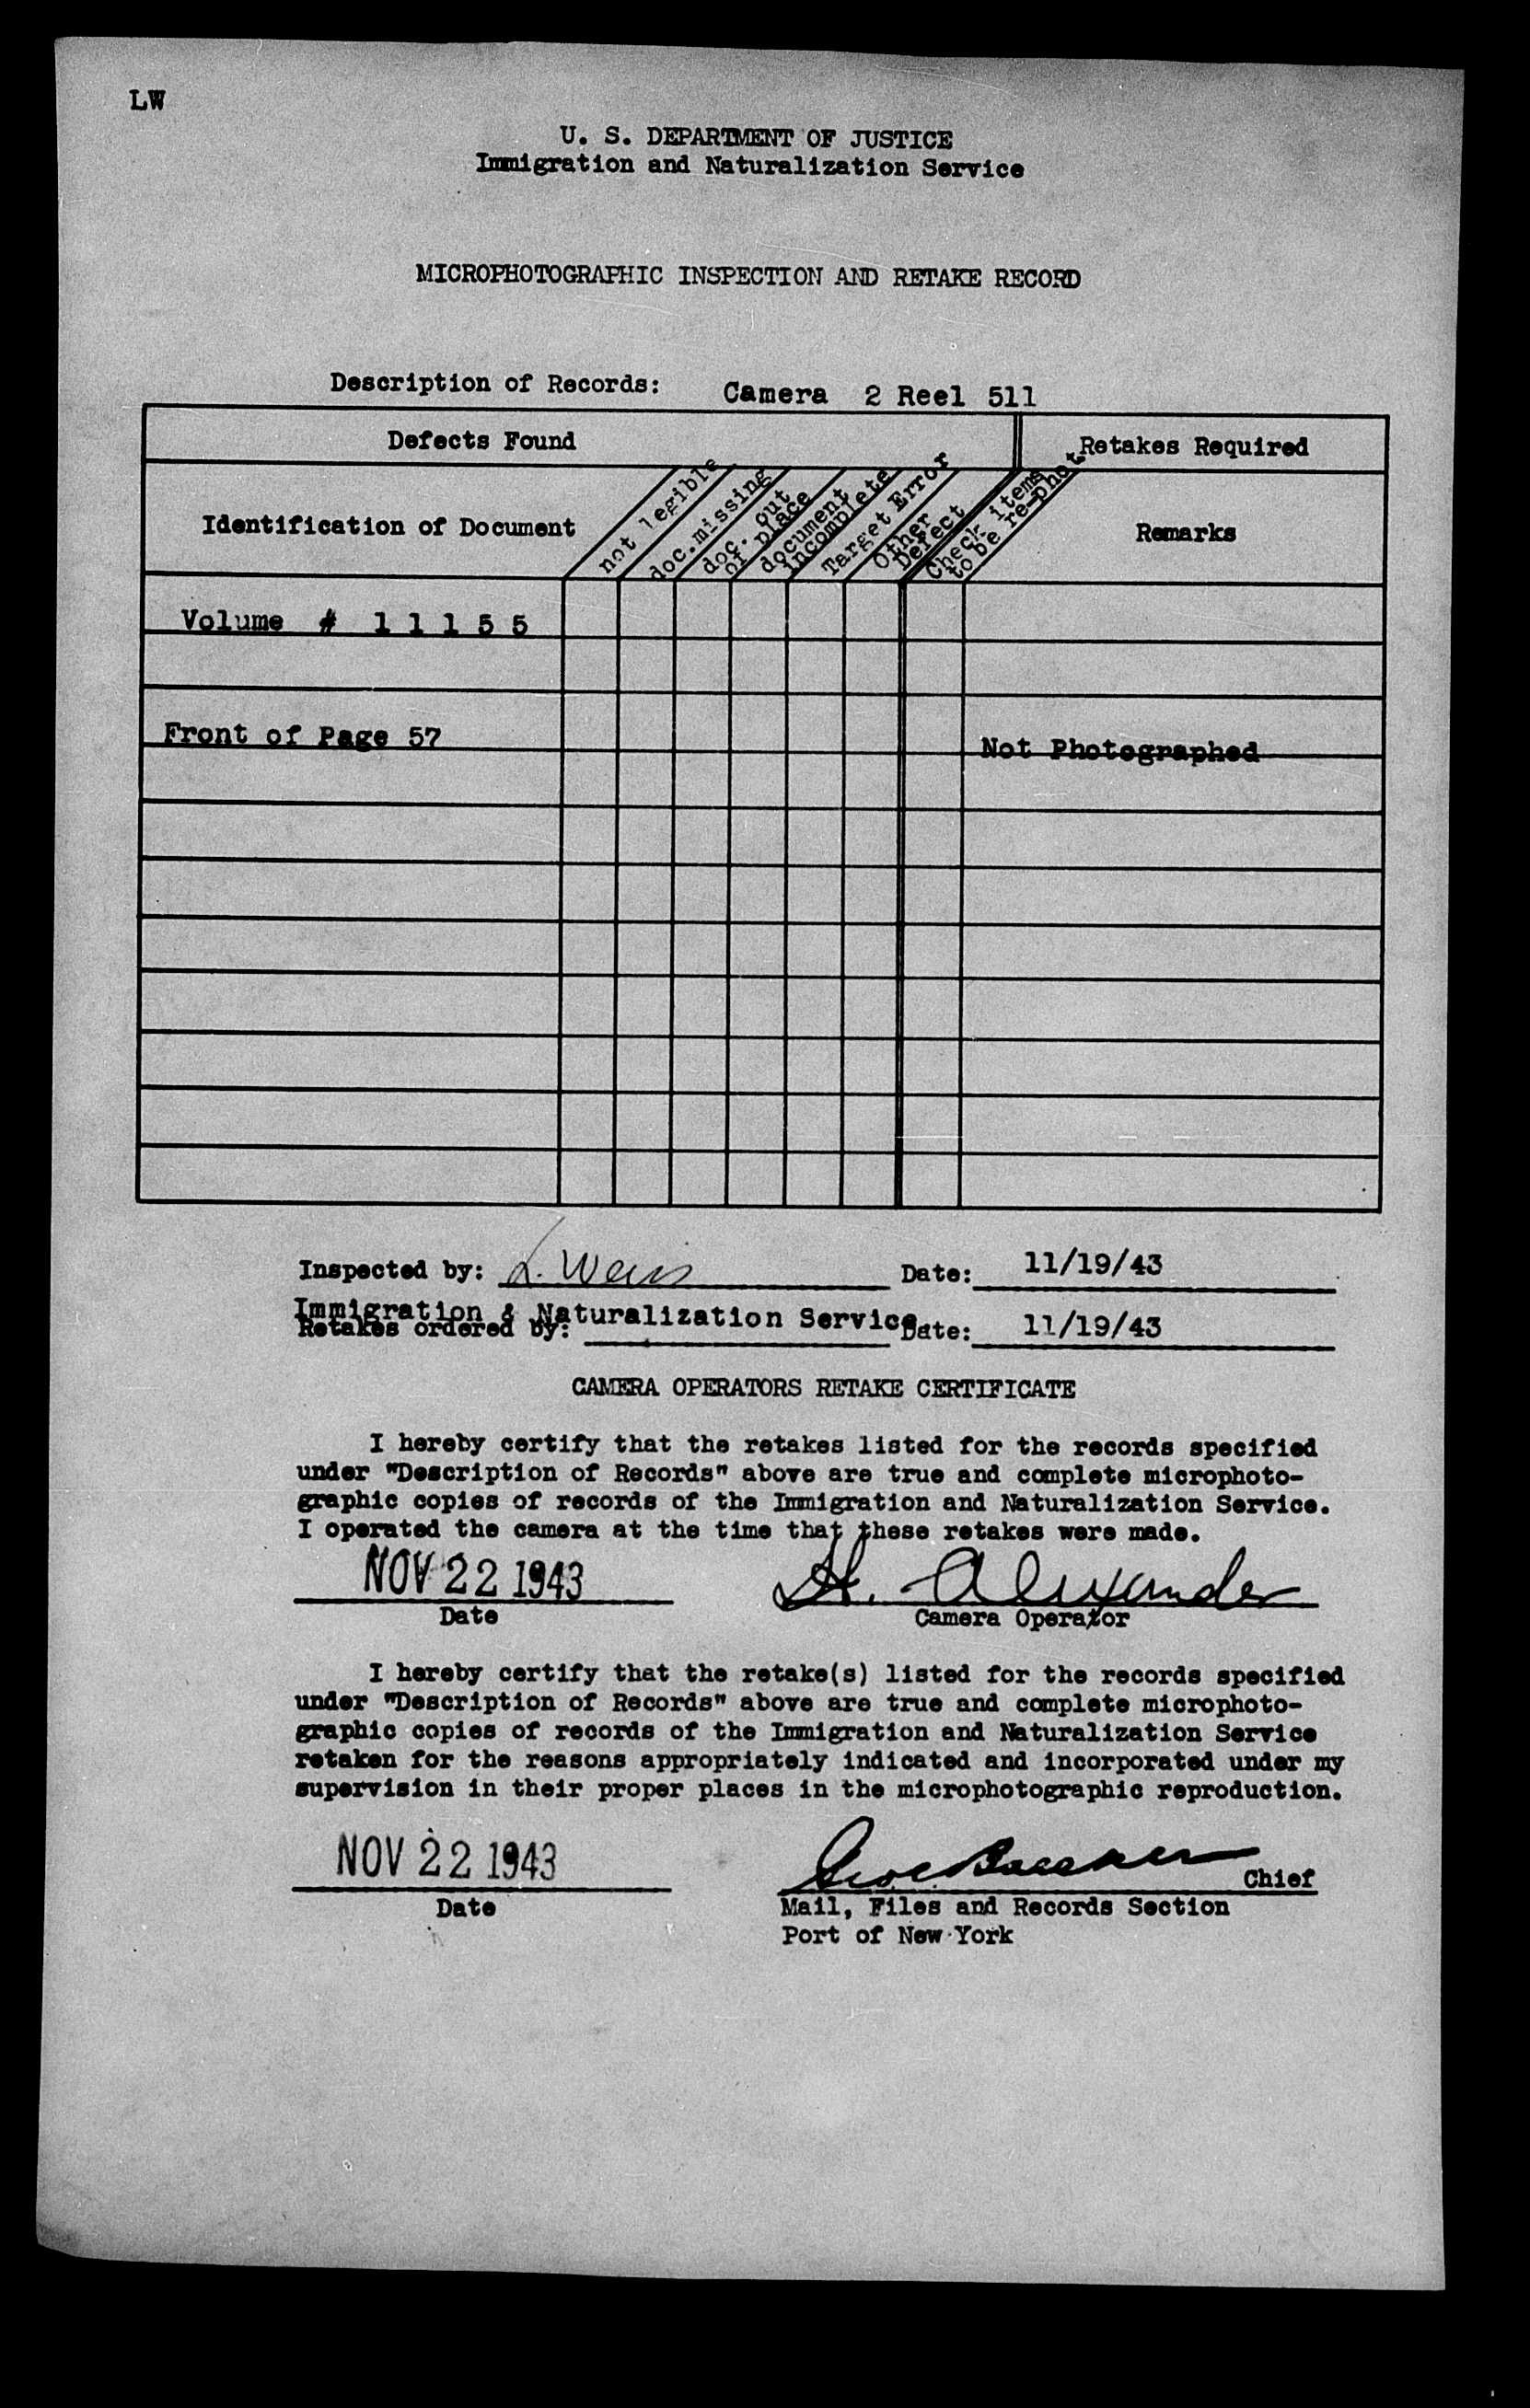 LW
U. S. DEPARTMENT OF JUSTICE
Immigration and Naturalization Service
MICROPHOTOGRAPHIC INSPECTION AND RETAKE RECORD
Description of Records: Camera 2 Reel 511
Defects Found
Retakes Required
Identification of Document
not legible
doc.missing
doc. out
of place
document
incomplete
Target Error
Other
Defect
Check items
to be re-phot
Remarks
Volume # 1 1 1 5 5
Front of Page 57
Not Photographed
Inspected by: L. Weis Date: 11/19/43
Immigration & Naturalization Service
Retakes ordered by: Date: 11/19/43
CAMERA OPERATORS RETAKE CERTIFICATE
I hereby certify that the retakes listed for the records specified
under "Description of Records" above are true and complete microphoto-
graphic copies of records of the Immigration and Naturalization Service.
I operated the camera at the time that these retakes were made.
NOV 22 1943 H. Alexander
Date Camera Operator
I hereby certify that the retake(s) listed for the records specified
under "Description of Records" above are true and complete microphoto-
graphic copies of records of the Immigration and Naturalization Service
retaken for the reasons appropriately indicated and incorporated under my
supervision in their proper places in the microphotographic reproduction.
NOV 22 1943 Chief
Date Mail, Files and Records Section
Port of New York